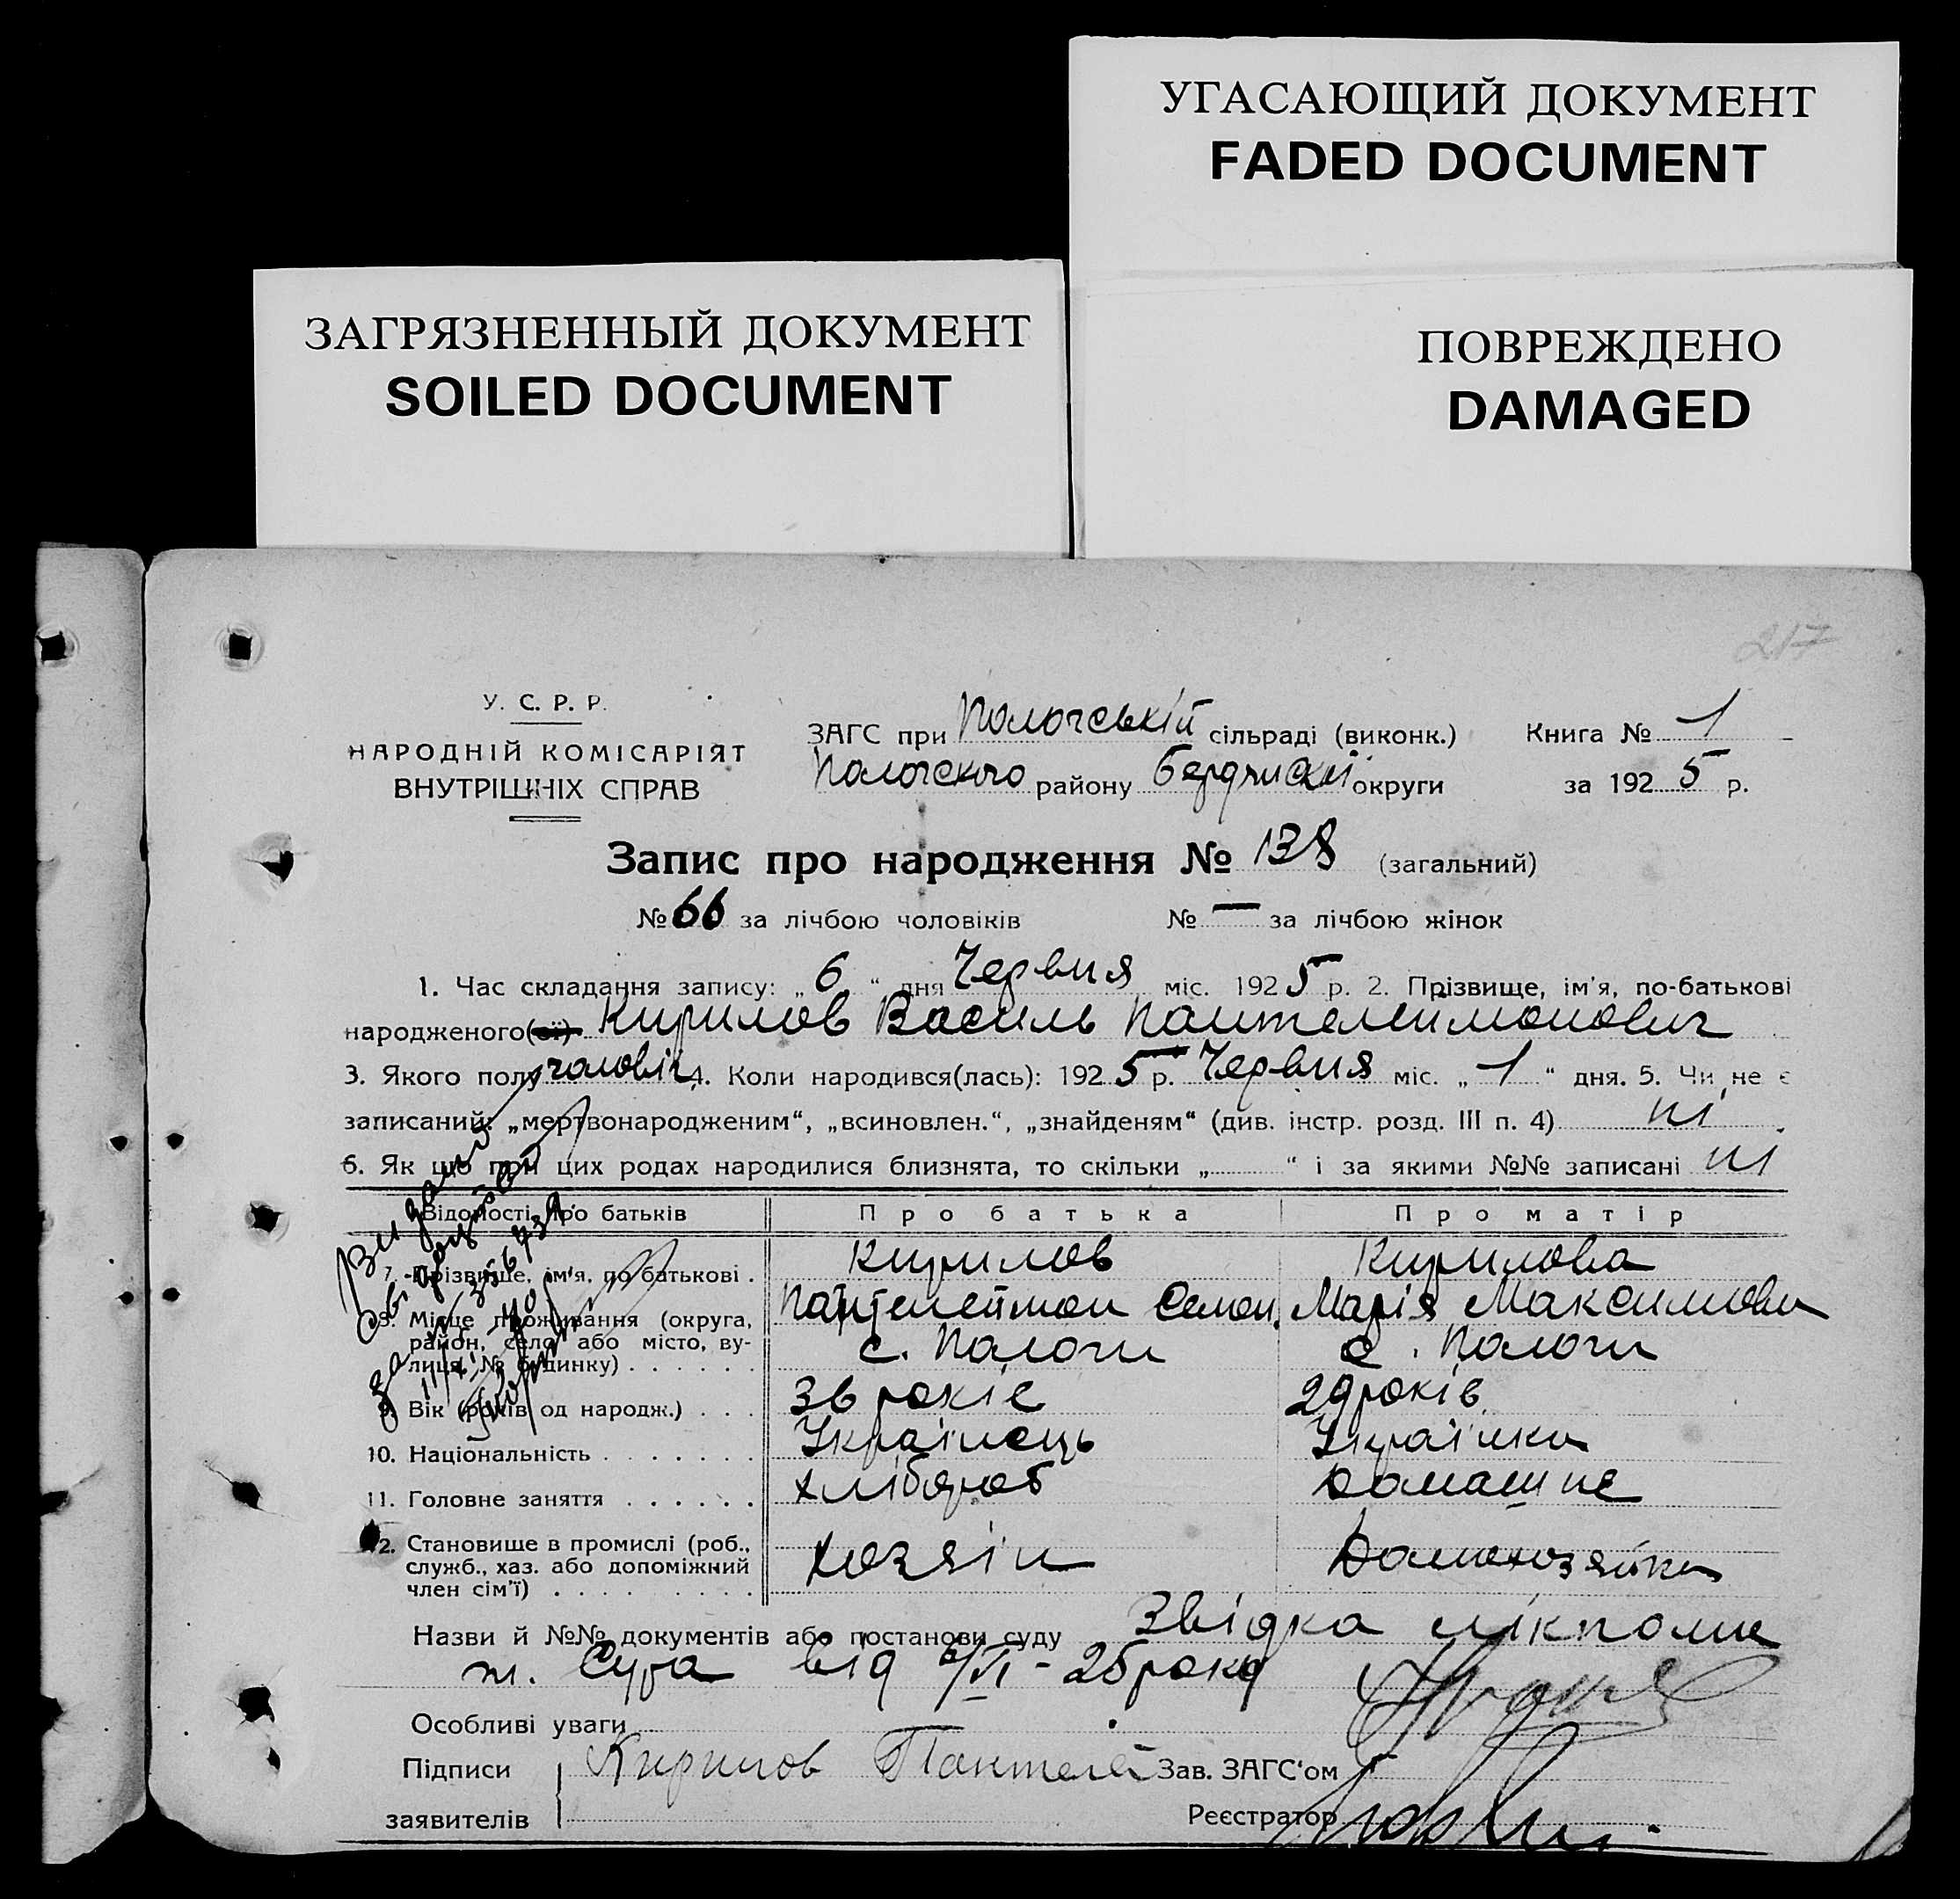 УГАСАЮЩИЙ ДОКУМЕНТ
FADED DOCUMENT
ЗАГРЯЗНЕННЫЙ ДОКУМЕНТ
SOILED DOCUMENT
ПОВРЕЖДЕНО
DAMAGED
217
У. С. Р. Р.
НАРОДНІЙ КОМІСАРІЯТ
ВНУТРІШНІХ СПРАВ
ЗАГС при Пологській сільраді (виконк.) Книга № 1
Пологского району Бердянської округи за 1925 р.
Запис про народження № 138 (загальний)
№ 66 за лічбою чоловіків № — за лічбою жінок
1. Час складання запису: „6“ дня Червня міс. 1925 р. 2. Прізвище, ім'я, по-батькові
народженого(ої) Кирилов Василь Пантелеймонович
3. Якого полу чоловіч 4. Коли народився(лась): 1925 р. Червня міс. „1“ дня. 5. Чи не є
записаний: „мертвонародженим“, „всиновлен.“, „знайденям“ (див. інстр. розд. III п. 4) ні
6. Як що при цих родах народилися близнята, то скільки „ “ і за якими №№ записані ні
Відомості про батьків Про батька Про матір
7. Прізвище, ім'я, по батькові . Кирилов Кирилова
Пантелеймон Семен. Марія Максимовн
8. Місце проживання (округа, район, село або місто, вулиця, № будинку) . . . . . . с. Пологи с. Пологи
9. Вік (років од народж.) . . . 36 років 29 років
10. Національність . . . . . . . Українець Українка
11. Головне заняття . . . . . . хлібороб Домашнє
12. Становище в промислі (роб., служб., хаз. або допоміжний член сім'ї) . . . . . . . . . хозяін Домохозяйка
Видано
свідоцтво
за №
Назви й №№ документів або постанови суду Звідка лікпом
від 6/VI - 25 року
Особливі уваги
Підписи заявителів Кирилов Пантелей Зав. ЗАГС'ом
Реєстратор